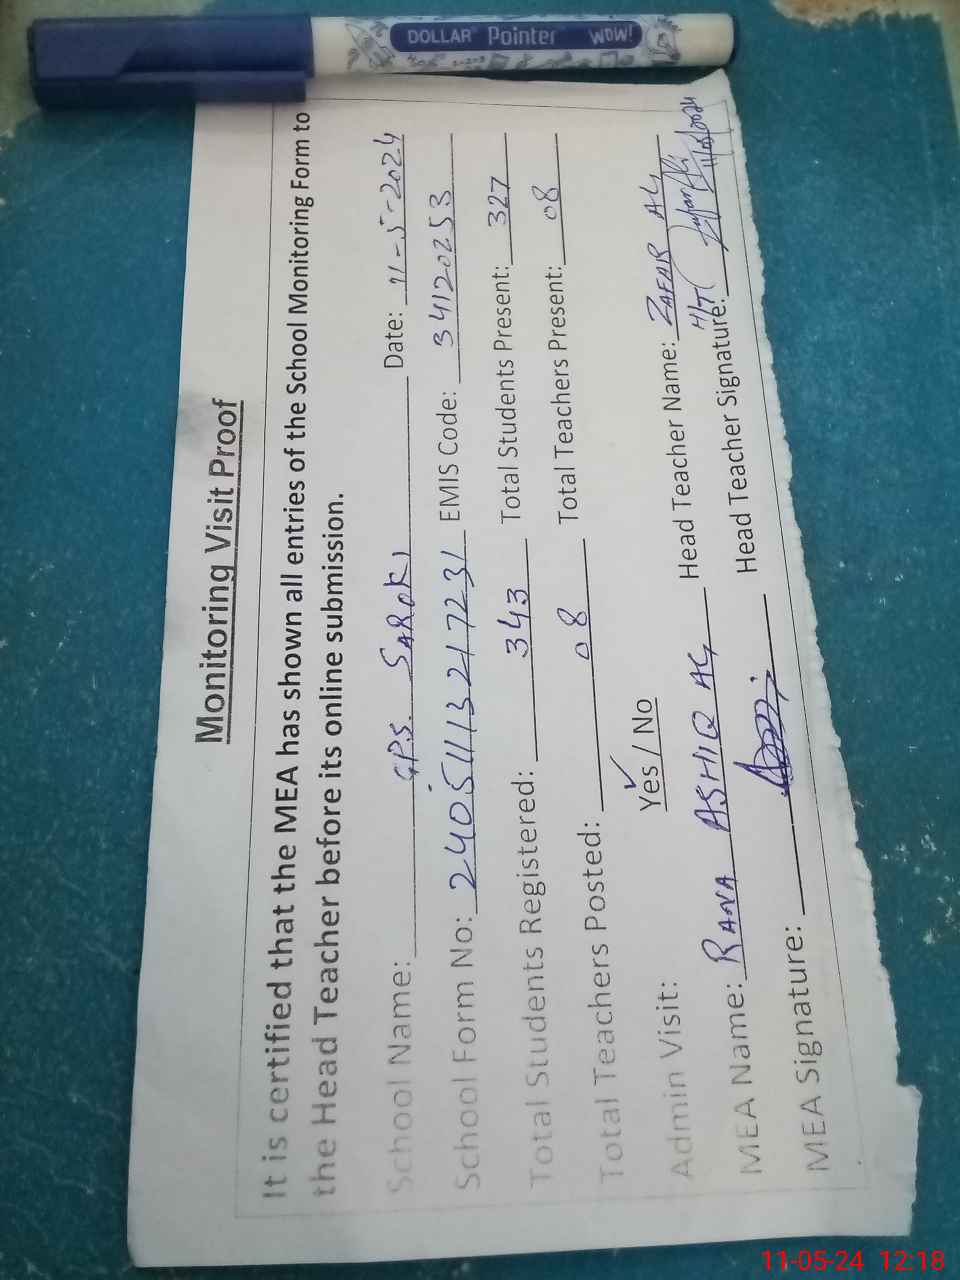 DOLLAR Pointer WOW!
Monitoring Visit Proof
It is certified that the MEA has shown all entries of the School Monitoring Form to
the Head Teacher before its online submission.
School Name: G.P.S SAROKI Date: 11-5-2024
School Form No: 24051113217231 EMIS Code: 34120253
Total Students Registered: 343 Total Students Present: 327
Total Teachers Posted: 08 Total Teachers Present: 08
Admin Visit: Yes / No
MEA Name: RANA ASHIQ ALI Head Teacher Name: ZAFAR ALI
MEA Signature: Head Teacher Signature: H/T Zafar Ali 11/05/2024
11-05-24 12:18